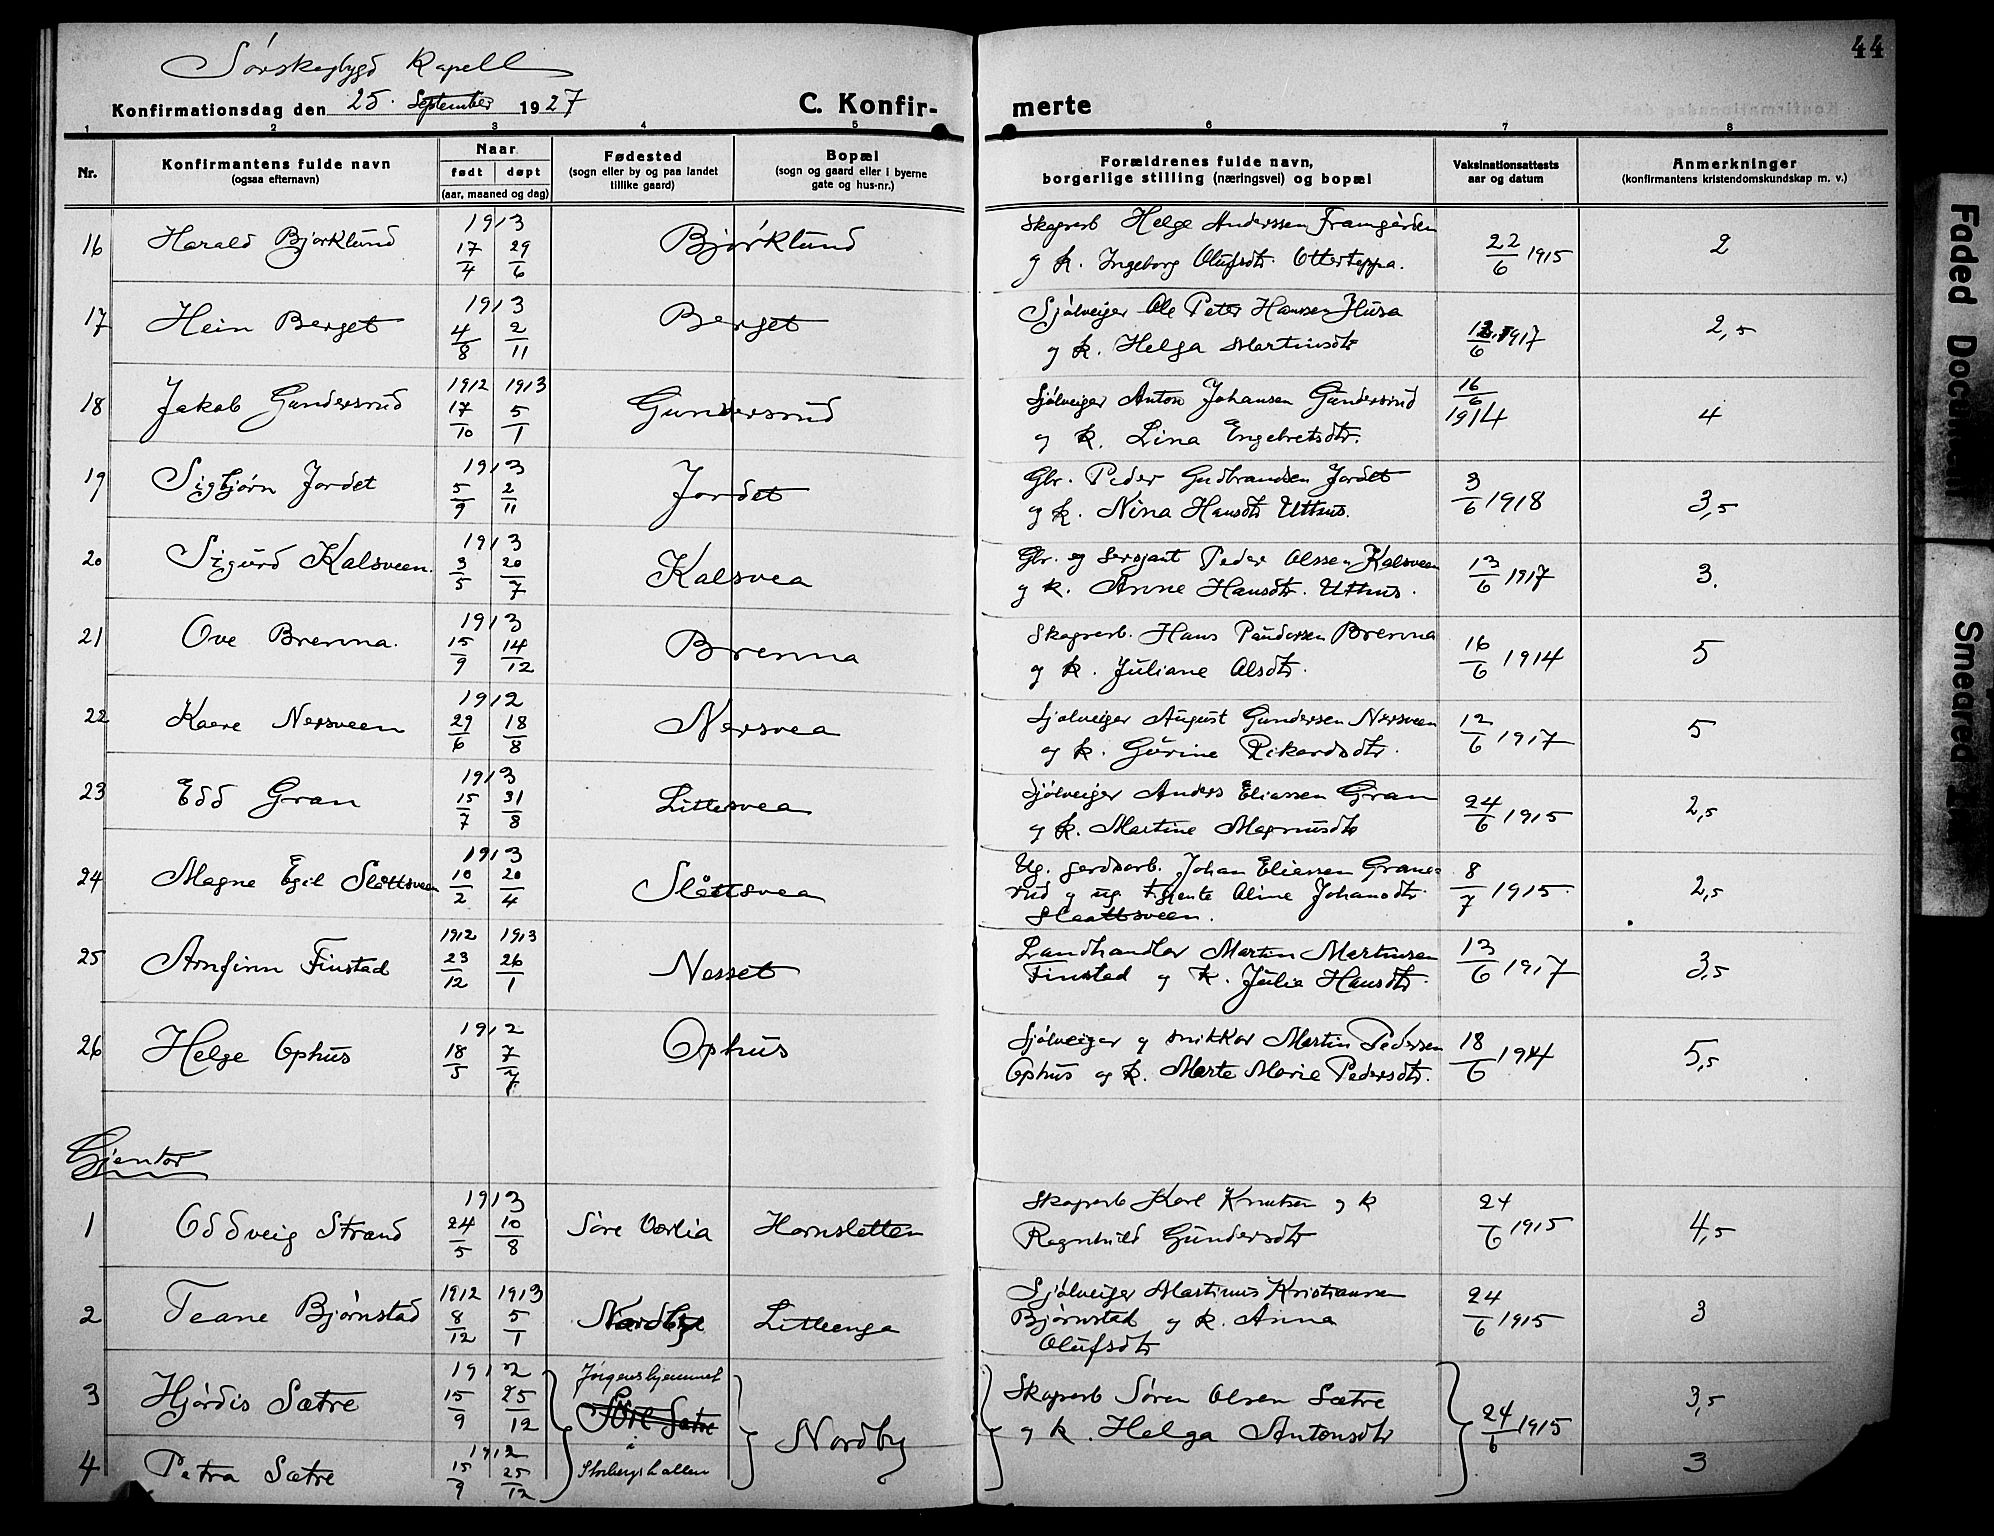 44
Sørskogbygd Kapell
Konfirmationsdag den 25. September 1927
C. Konfir-
merte
1 2 3 4 5 6 7 8
Nr.
Konfirmantens fulde navn
(ogsaa efternavn)
Naar
født døpt
(aar, maaned og dag)
Fødested
(sogn eller by og paa landet
tillike gaard)
Bopæl
(sogn og gaard eller i byerne
gate og hus-nr.)
Forældrenes fulde navn,
borgerlige stilling (næringsvei) og bopæl
Vaksinationsattests
aar og datum
Anmerkninger
(konfirmantens kristendomskundskap m. v.)
16 Harald Bjørklund 1913 17/4 29/6 Bjørklund Skogarb Helge Anderssen Framgården
og k. Ingeborg Olufsdtr. Otterteppa. 22/6 1915 2
17 Hein Berget 1913 4/8 2/11 Berget Sjølveiger Ole Peter Hanssen Husa
og k. Helga Martinsdtr 13/6 1917 2,5
18 Jakob Gundersrud 1912 17/10 1913 5/1 Gundersrud Sjølveiger Anton Johansen Gundersrud
og k. Lina Engebretsdtr. 16/6 1914 4
19 Sigbjørn Jordet 1913 5/9 2/11 Jordet Gbr. Peder Gudbrandsen Jordet
og k. Nina Hansdtr Uthus. 3/6 1918 3,5
20 Sigurd Kalsveen. 1913 3/5 20/7 Kalsvea Gbr. og sersjant Peder Olssen Kalsveen
og k. Anne Hansdtr. Uthus. 13/6 1917 3.
21 Ove Brenna. 1913 15/9 14/12 Brenna Skogarb. Hans Paudersen Brenna
og k. Juliane Olsdtr. 16/6 1914 5
22 Kaare Nersveen 1912 29/6 18/8 Nersvea Sjølveiger August Gundersen Nersveen
og k. Gurine Rikardsdtr. 12/6 1917 5
23 Edd Gran 1913 15/7 31/8 Littlesvea Sjølveiger Anders Eliassen Gran
og k. Martine Magnusdtr 24/6 1915 2,5
24 Magne Egil Slåttsveen 1913 10/2 20/4 Slåttsvea Ug. gardsarb. Johan Eliassen Grane=
rud og ug tjente Oline Johansdtr.
Slaattsveen. 8/7 1915 2,5
25 Arnfinn Finstad 1912 23/12 1913 26/1 Nesset Landhandlar Martin Martinsen
Finstad og k. Julie Hansdtr. 13/6 1917 3,5
26 Helge Ophus 1912 18/5 7/7 Ophus Sjølveiger og snikkar Martin Pedersen
Ophus og k. Marte Marie Pedersdtr. 18/6 1914 5,5
Gjentor
1 Oddveig Strand 1913 24/5 10/8 Søre Varlia Hornsletten Skogarb Karl Knutsen og k
Ragnhild Gundersdtr 24/6 1915 4,5
2 Teane Bjørnstad 1912 8/12 1913 5/1 Nordbye Litleenga Sjølveiger Martinus Kristiansen
Bjørnstad og k. Anna
Olufsdtr 24/6 1915 3
3 Hjørdis Sætre 1912 15/9 25/12 Jørgenshjemmet
Søre Sætre
i Nordby Skogarb Søren Olsen Sætre
og k. Helga Antonsdtr 24/6 1915 3,5
4 Petra Sætre 1912 15/9 25/12 Storbergshallen 3
Faded Document
Smeared Ink